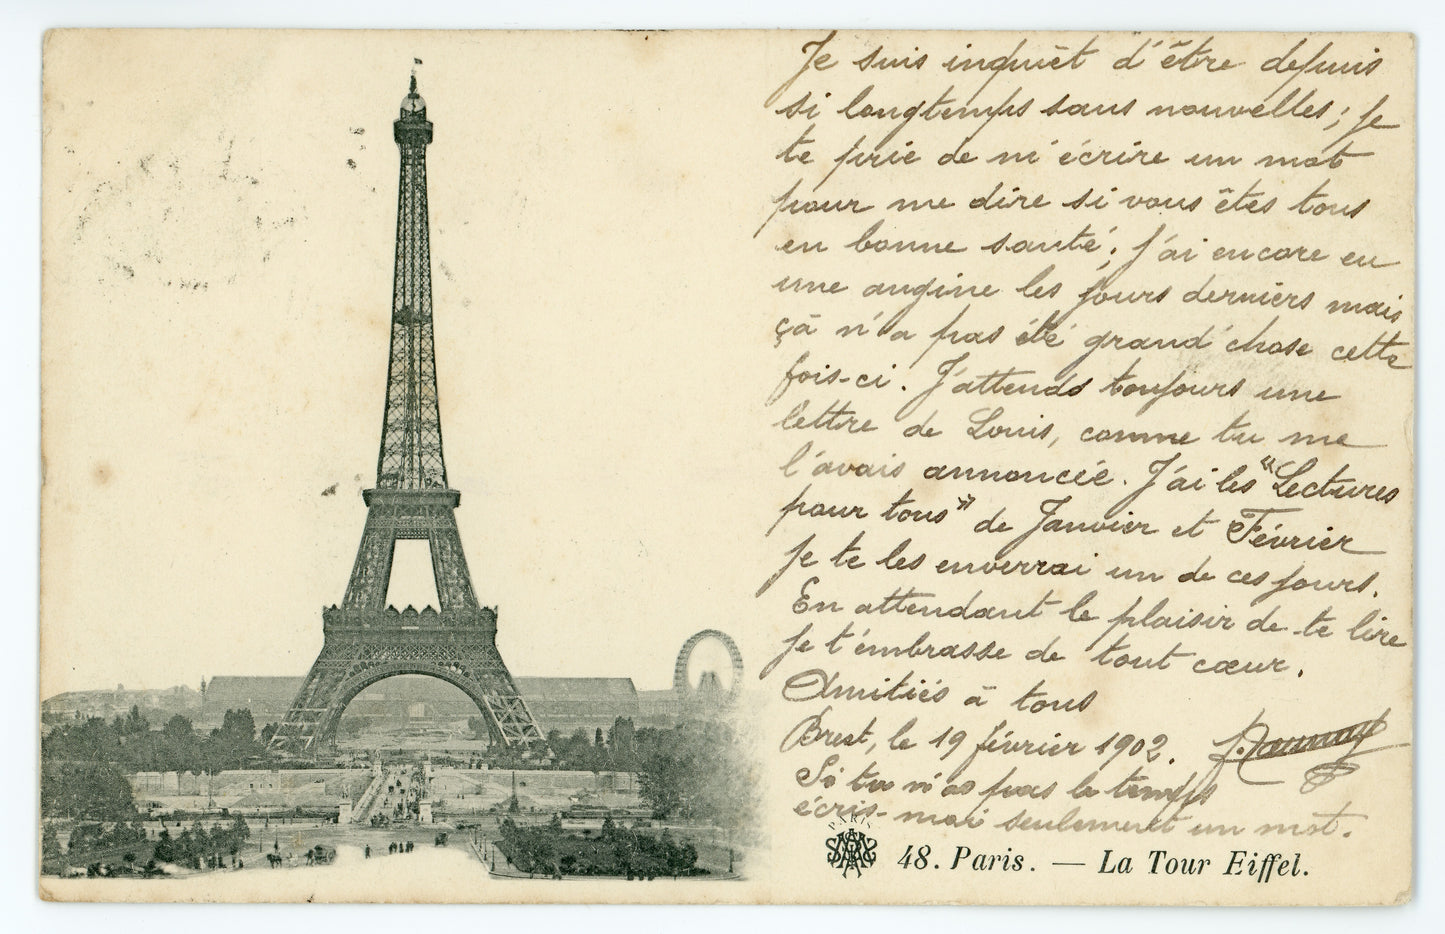 Je suis inquièt d'être depuis
si longtemps sans nouvelles ; je
te prie de m'écrire un mot
pour me dire si vous êtes tous
en bonne santé ; j'ai encore eu
une angine les jours derniers mais
çà n'a pas été grand'chose cette
fois-ci. J'attends toujours une
lettre de Louis, comme tu me
l'avais annoncée. J'ai les "Lectures
pour tous" de Janvier et Février
je te les enverrai un de ces jours.
En attendant le plaisir de te lire
je t'embrasse de tout cœur.
Amitiés à tous
Brest, le 19 février 1902.
Si tu n'as pas le temps
écris-moi seulement un mot.
PARIS
48. Paris. — La Tour Eiffel.